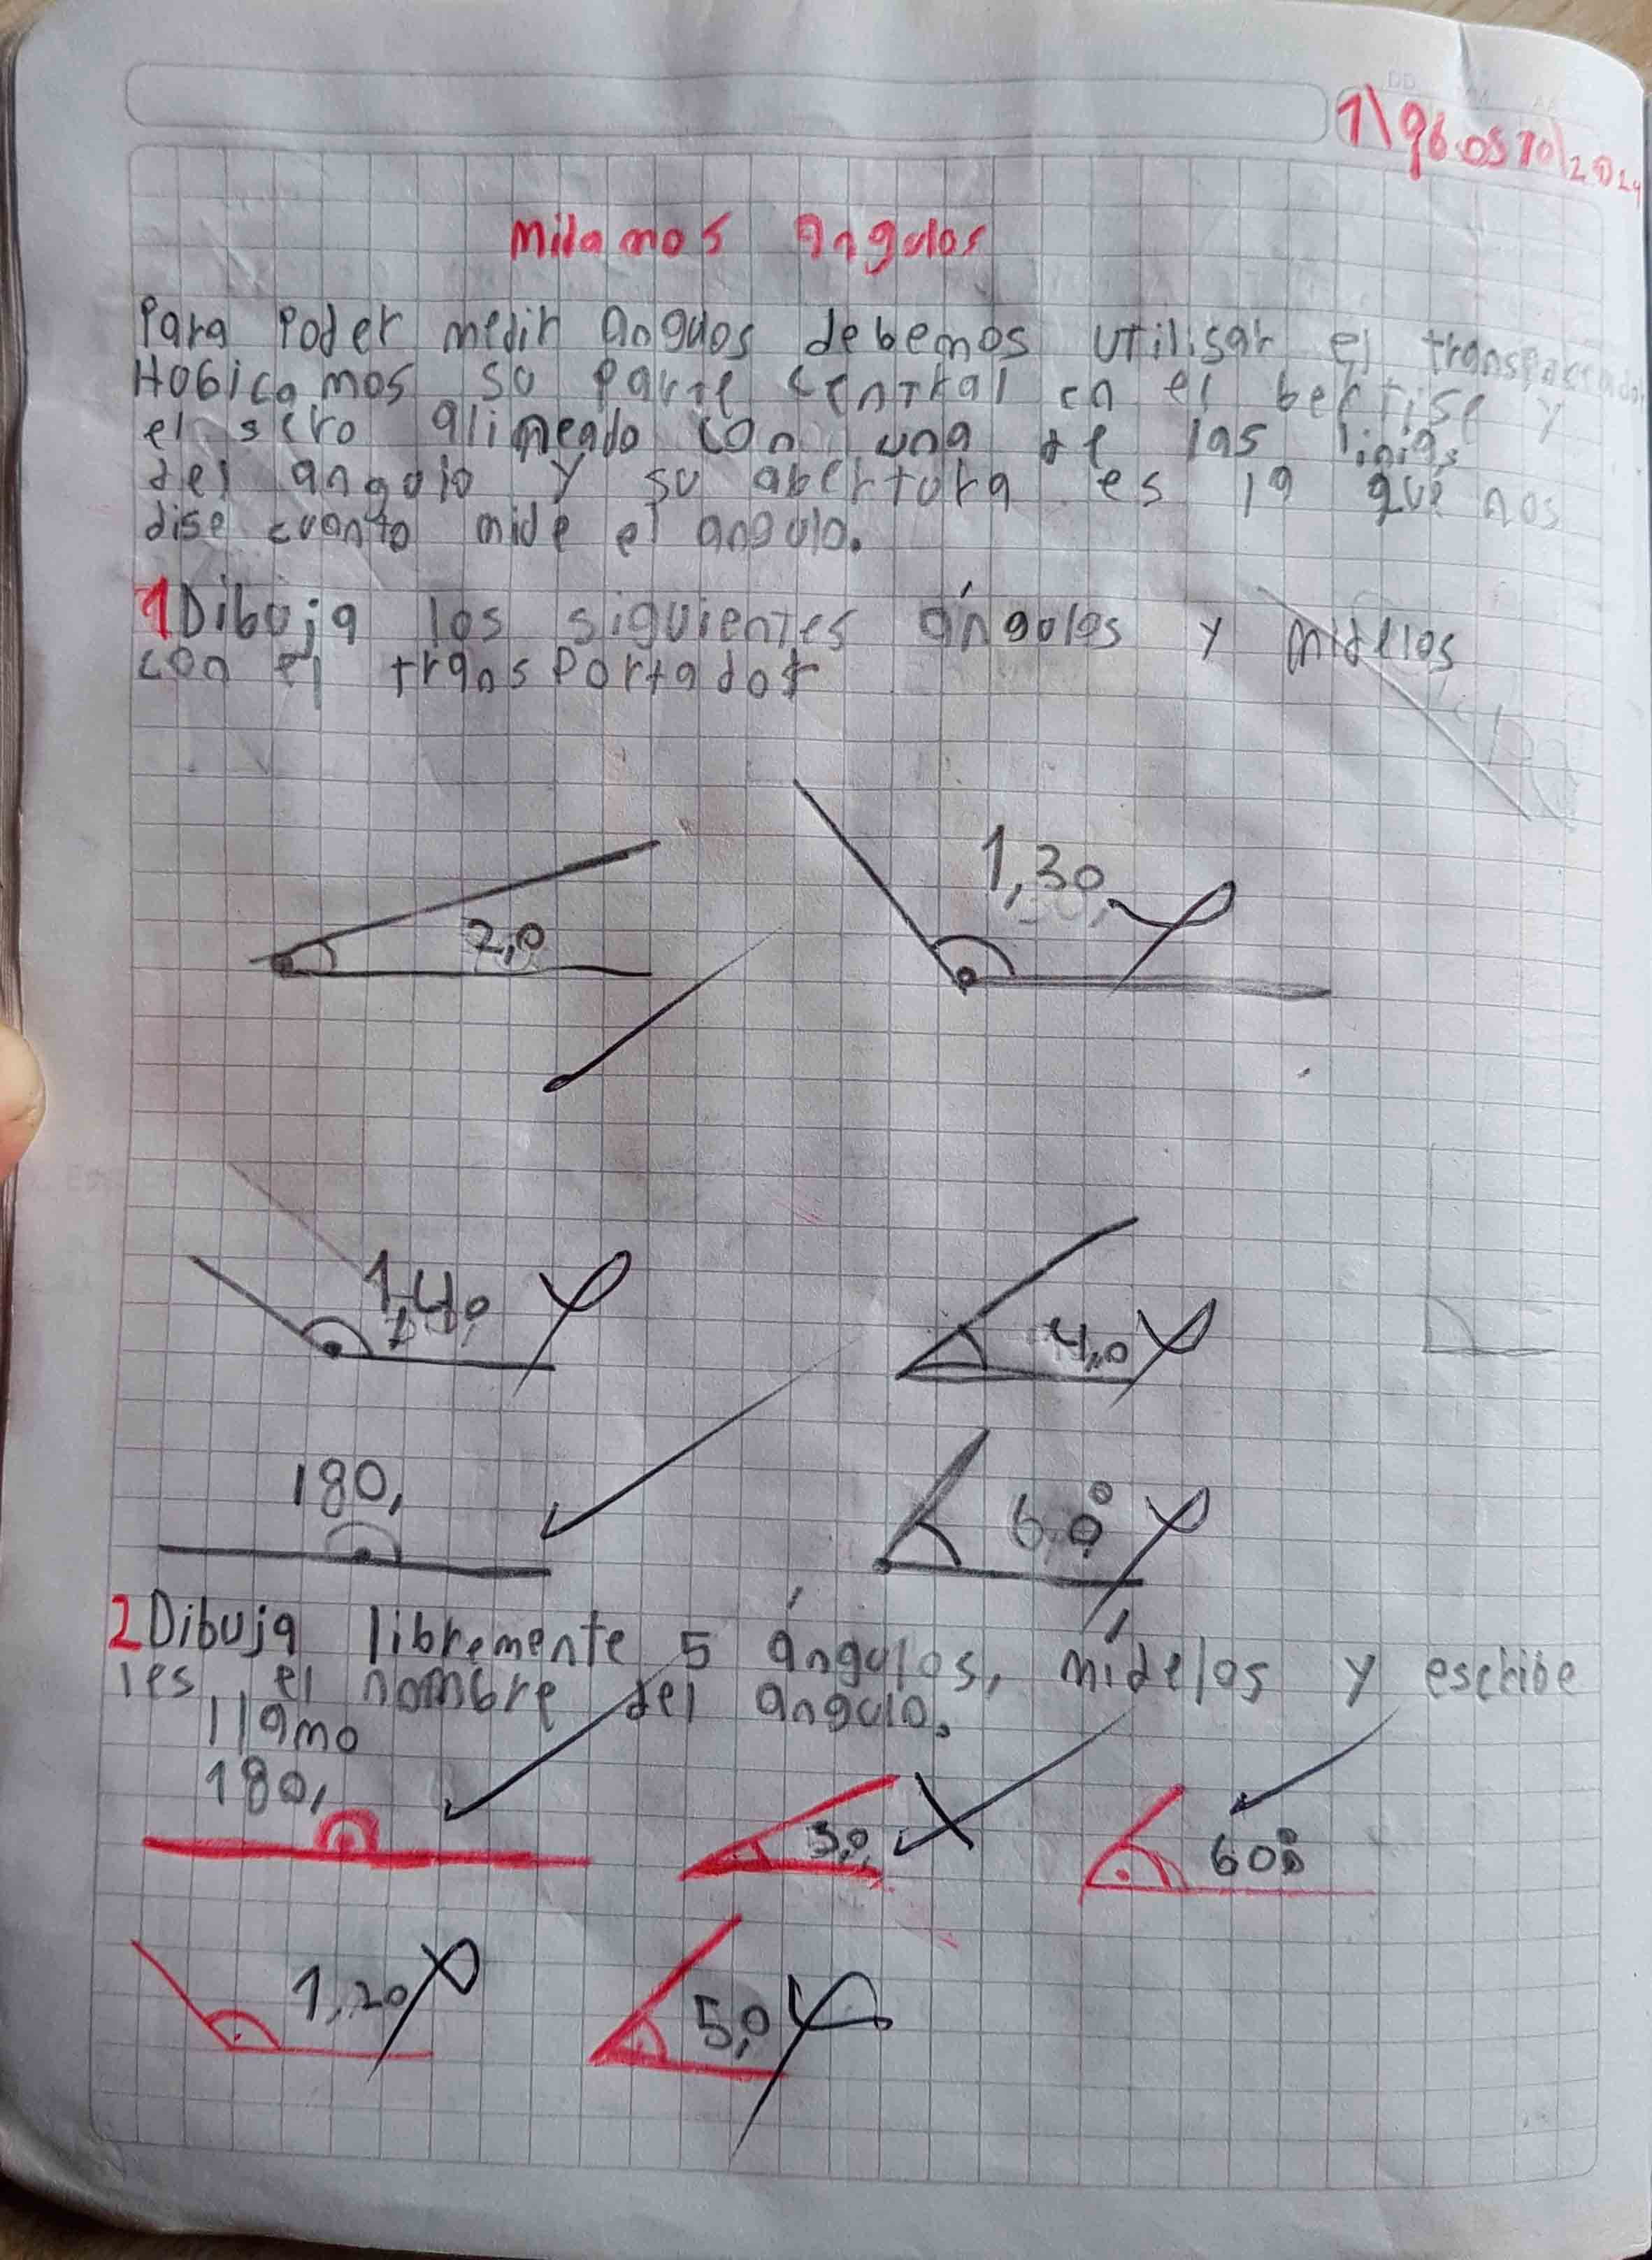 1\agosto\2024
midamos angulos
Para Poder medir angulos debemos utilisar el transportador
Hobicamos su parte central en el bertise y
el sero alineado con una de las linias
del angulo y su abertura es la que nos
dise cuanto mide el angulo.
1 Dibuja los siguientes ángulos y midelos
con el transportador
2,0
1,30,
1,40
4,0
180,
60°
2 Dibuja libremente 5 ángulos, mídelos y escribe
les el nombre del angulo.
llamo
180,
3,0,
60°
1,20
5,0